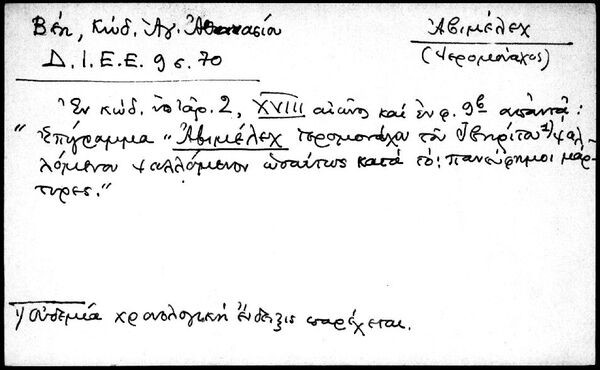 Βέη, Κώδ. Ἁγ. Ἀθανασίου
Ἀβιμέλεχ
(Ἱερομόναχος)
Δ.Ι.Ε.Ε. 9 σ. 70
Ἐν κώδ. ὑπ' ἀρ. 2, XVIII αἰῶνος καὶ ἐν φ. 9β ἀπαντᾷ:
"Ἐπίγραμμα "Ἀβιμέλεχ ἱερομονάχου τοῦ Ἰβηρίτου 1) ψαλ-
λόμενον ψαλλόμενον ὡσαύτως κατὰ τό: πανεύφημοι μάρ-
τυρες."
1) Οὐδεμία χρονολογικὴ ἔνδειξις παρέχεται.